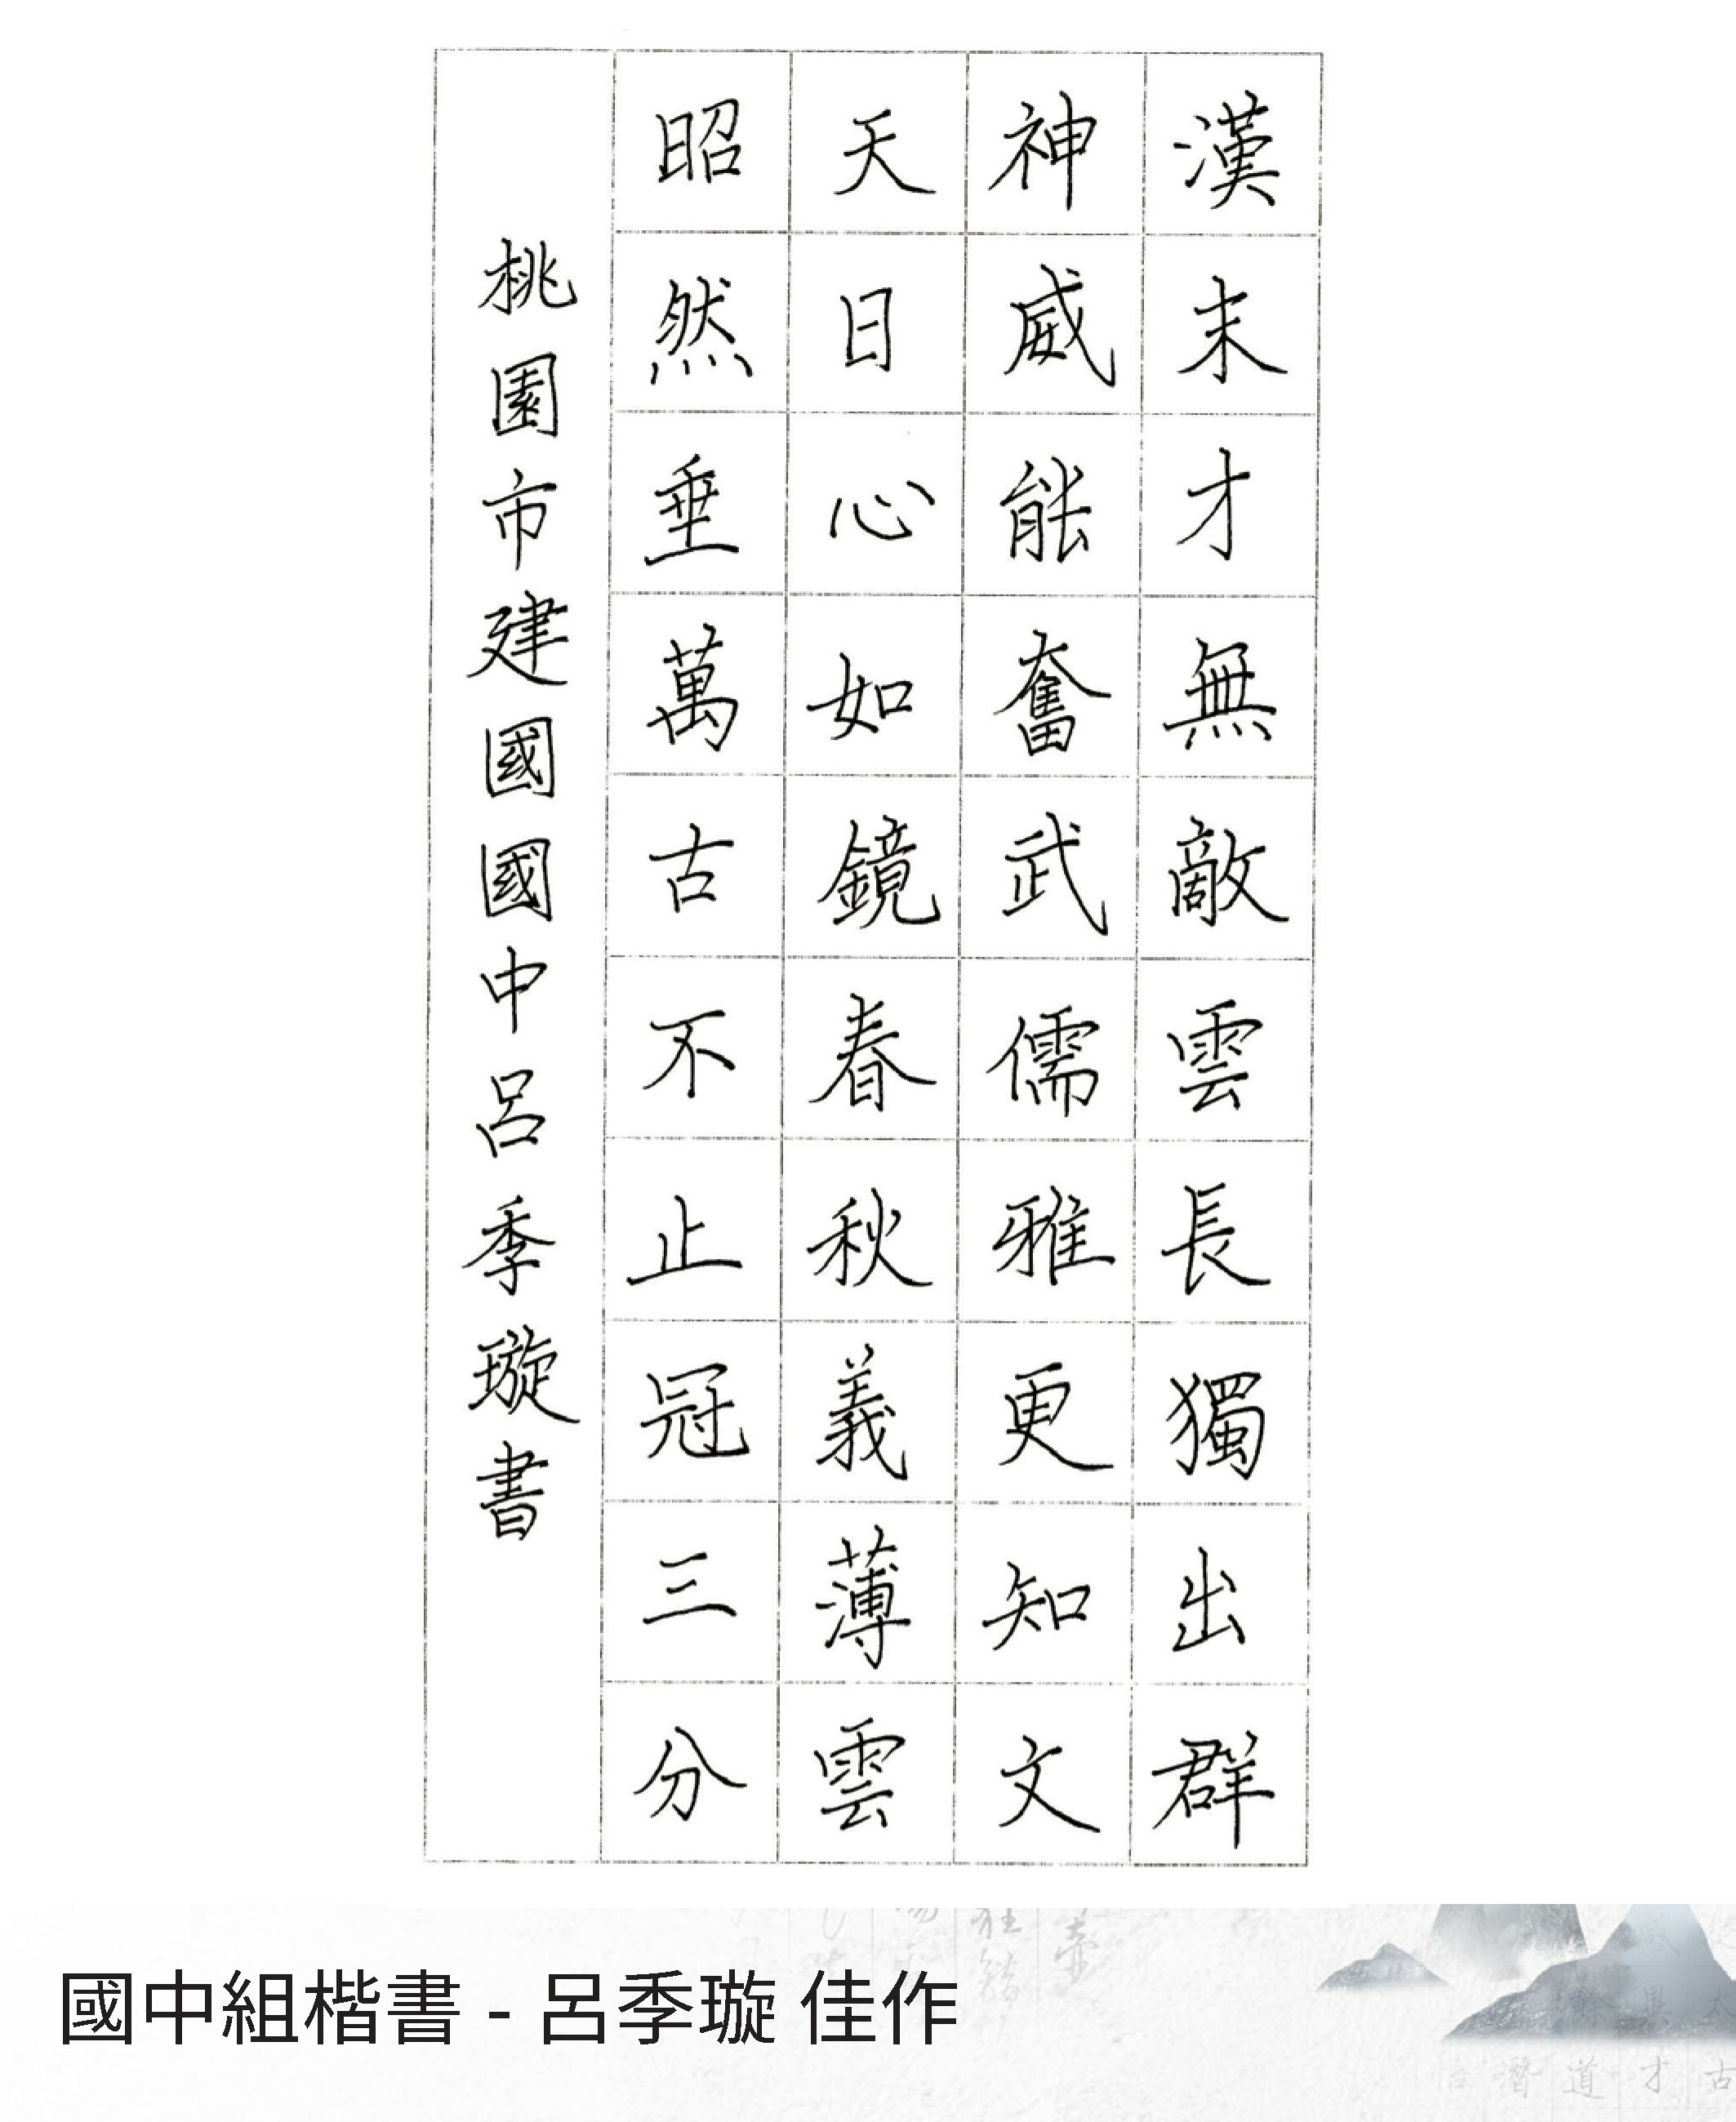 漢末才無敵雲長獨出群
神威能奮武儒雅更知文
天日心如鏡春秋義薄雲
昭然垂萬古不止冠三分
桃園市建國國中呂季璇書
國中組楷書 - 呂季璇 佳作